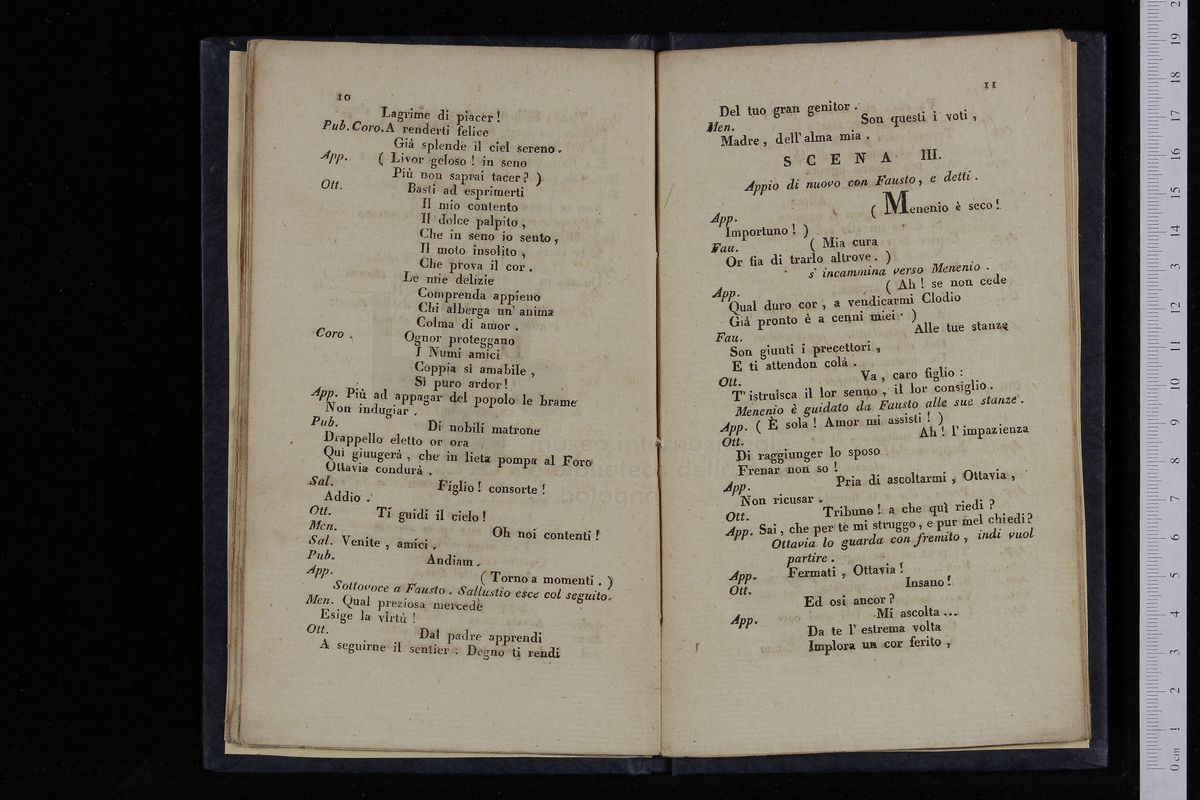 10
Lagrime di piacer!
Pub. Coro. A renderti felice
Già splende il ciel sereno.
App. ( Livor geloso! in seno
Più non saprai tacer? )
Ott. Basti ad esprimerti
Il mio contento
Il dolce palpito,
Che in seno io sento,
Il moto insolito,
Che prova il cor.
Le mie delizie
Comprenda appieno
Chi alberga un' anima
Colma di amor.
Coro. Ognor proteggano
I Numi amici
Coppia sì amabile,
Sì puro ardor!
App. Più ad appagar del popolo le brame
Non indugiar.
Pub. Di nobili matrone
Drappello eletto or ora
Qui giuugerà, che in lieta pompa al Foro
Ottavia condurà.
Sal. Figlio! consorte!
Addio.
Ott. Ti guidi il cielo!
Men. Oh noi contenti!
Sal. Venite, amici.
Pub. Andiam.
App. ( Torno a momenti. )
Sottovoce a Fausto. Sallustio esce col seguito.
Men. Qual preziosa mercede
Esige la virtù!
Ott. Dal padre apprendi
A seguirne il sentier: Degno ti rendi
11
Del tuo gran genitor.
Men. Son questi i voti,
Madre, dell' alma mia.
SCENA III.
Appio di nuovo con Fausto, e detti.
App. ( Menenio è seco!
Importuno! )
Fau. ( Mia cura
Or fia di trarlo altrove. )
s' incammina verso Menenio.
App. ( Ah! se non cede
Qual duro cor, a vendicarmi Clodio
Già pronto è a cenni miei. )
Fau. Alle tue stanze
Son giunti i precettori,
E ti attendon colà.
Ott. Va, caro figlio:
T' istruisca il lor senno, il lor consiglio.
Menenio è guidato da Fausto alle sue stanze.
App. ( È sola! Amor mi assisti! )
Ott. Ah! l' impazienza
Di raggiunger lo sposo
Frenar non so!
App. Pria di ascoltarmi, Ottavia,
Non ricusar.
Ott. Tribuno! a che quì riedi?
App. Sai, che per te mi struggo, e pur mel chiedi?
Ottavia lo guarda con fremito, indi vuol
partire.
App. Fermati, Ottavia!
Ott. Insano!
Ed osi ancor?
App. Mi ascolta...
Da te l' estrema volta
Implora un cor ferito,
museo internazionale